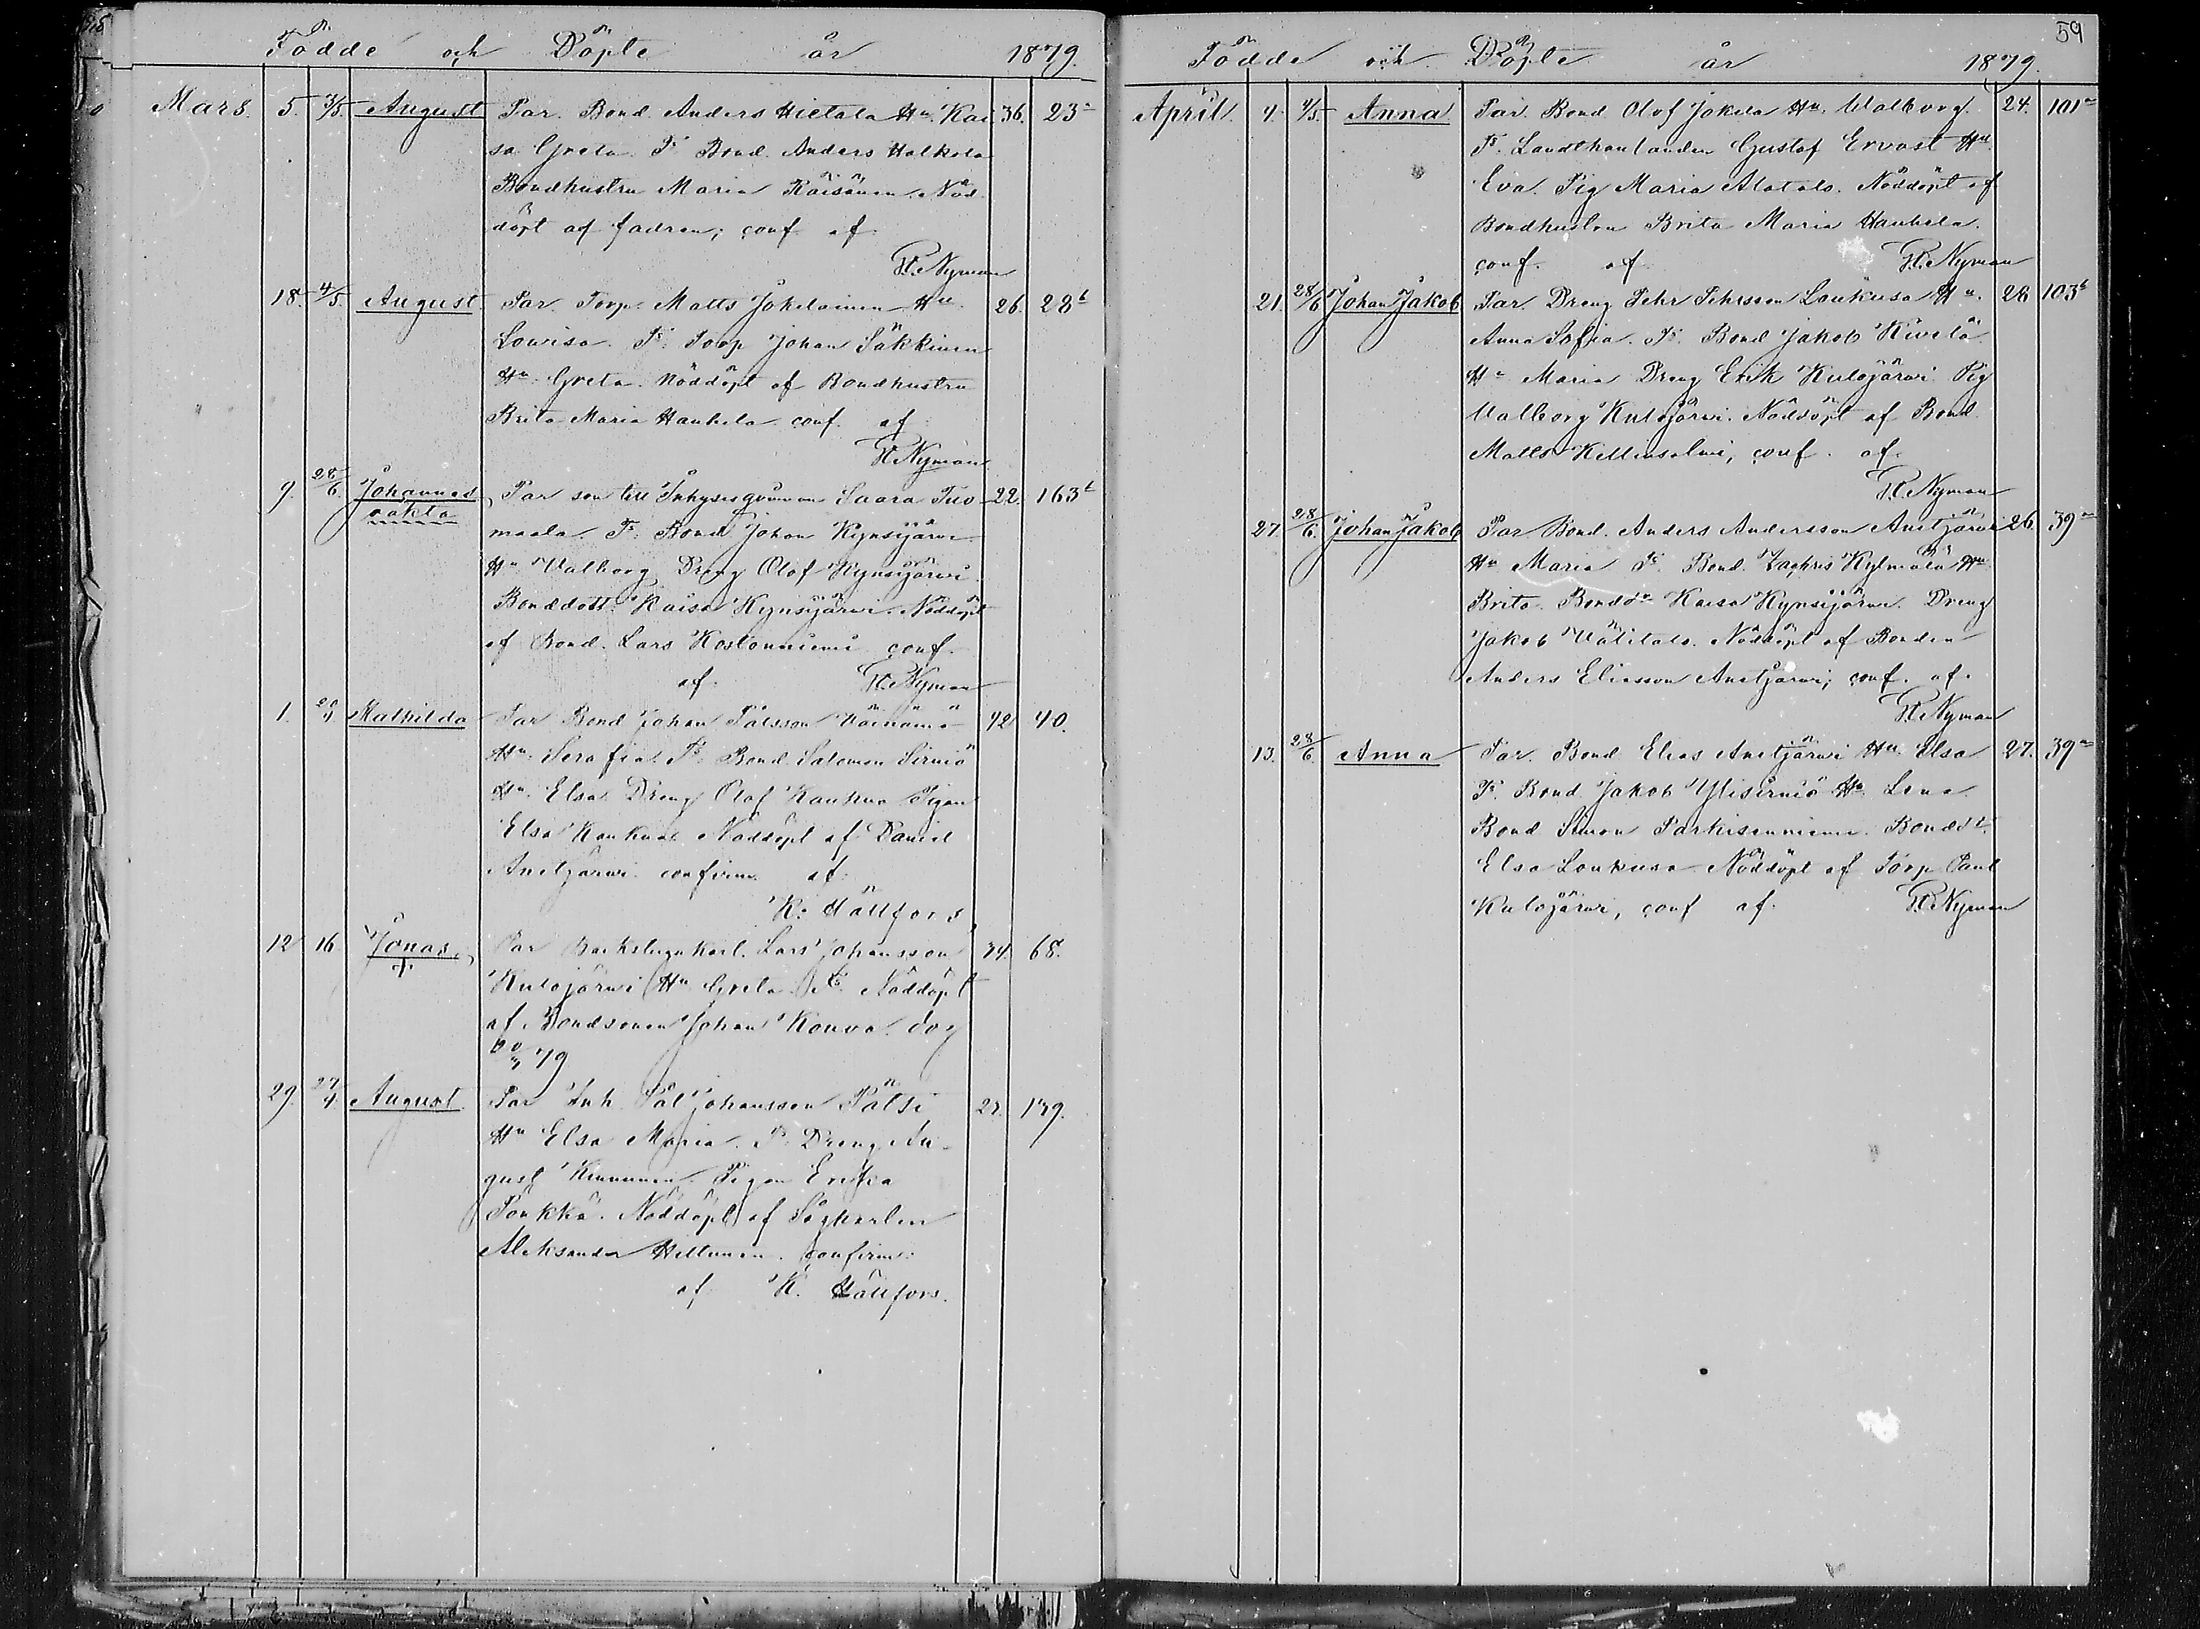 Födde och Döpte år 1879.
Mars. 5. 4/5. August Par. Bond. Anders Hietala Hu. Kai 36. 23a
sa Greta. Ts Bond. Anders Halkola
Bondhustru Maria Räisänen. Nöd
döpt af fadren; conf. af
P. Nyman
18. 4/5. August Par. Torp. Matts Jokelainen Hu 26. 28b
Lovisa. Ts. Torp Johan Säkkinen
Hu Greta. Nöddöpt af Bondhustru
Brita Maria Hanhela conf. af
P. Nyman
9. 28/6. Johannes Par son till Inhysesqvinnan Saara Tuo 22. 163b
oäkta maala Ts. Bond Johan Kynsijärvi
Hu Valborg Dreng Olof Kynsijärvi.
Bonddott. Kaisa Kynsijärvi. Nöddöpt
af Bond. Lars Kostonniemi conf.
af P. Nyman
1. 20/4 Mathilda Par Bond Johan Pålsson Hu 42 40.
Hu. Serafia. Ts. Bond Salomon Sirniö
Hu. Elsa Dreng Olof Kaukua Pigan
Elsa Kaukua Nöddöpt af Daniel
Anetjärwi confirm. af.
K. Hällfors
12 16. Jonas. Par Lars Johansson 34. 68.
Kulojärwi (Hu Greta. Ts Nöddöpt
af Bondsonen Johan Kouva. dog
79
29. 27/4. August Par Inh. Pål Johansson Pätsi 27. 139.
Hu Elsa Maria. Ts. Dreng Au-
gust Kinnunen. Pigan Erika
Pönkkä. Nöddöpt af
Aleksander Hiltunen. confirm.
af K. Hällfors.
59
Födde och Döpte år 1879.
April. 4. 4/5. Anna Par. Bond Olof Jokela Hu. Walborg. 24. 101a
Ts. Gustaf Ervast Hu
Eva. Pig Maria Alatalo. Nöddöpt af
Bondhustru Brita Maria Hanhela.
conf. af P. Nyman
21. 28/6 Johan Jakob Par. Dreng Pehr Pehrsson Loukusa Hu. 28 103b
Anna Sofia. Ts. Bond Jakob Kivelä
Hu Maria Dreng Erik Kulojärwi Pig
Walborg Kulojärwi. Nöddöpt af Bond
Matts conf. af.
P. Nyman
27. 28/6. Johan Jakob Par Bond. Anders Andersson Anetjärwi 26. 39a
Hu Maria Ts. Bond. Zachris Kylmälä Hu
Brita. Bondd Kaisa Kynsijärwi. Dreng
Jakob Välitalo. Nöddöpt af Bonden
Anders Eliasson Anetjärwi; conf. af.
P. Nyman
13. 28/6. Anna Par. Bond Elias Anetjärwi Hu. Elsa 27. 39a
Ts. Bond Jakob Ylisirniö Hu. Lena
Bond Simon Parkisenniemi. Bonddt.
Elsa Loukusa Nöddöpt af Torp Paul
Kulojärwi, conf af. P. Nyman